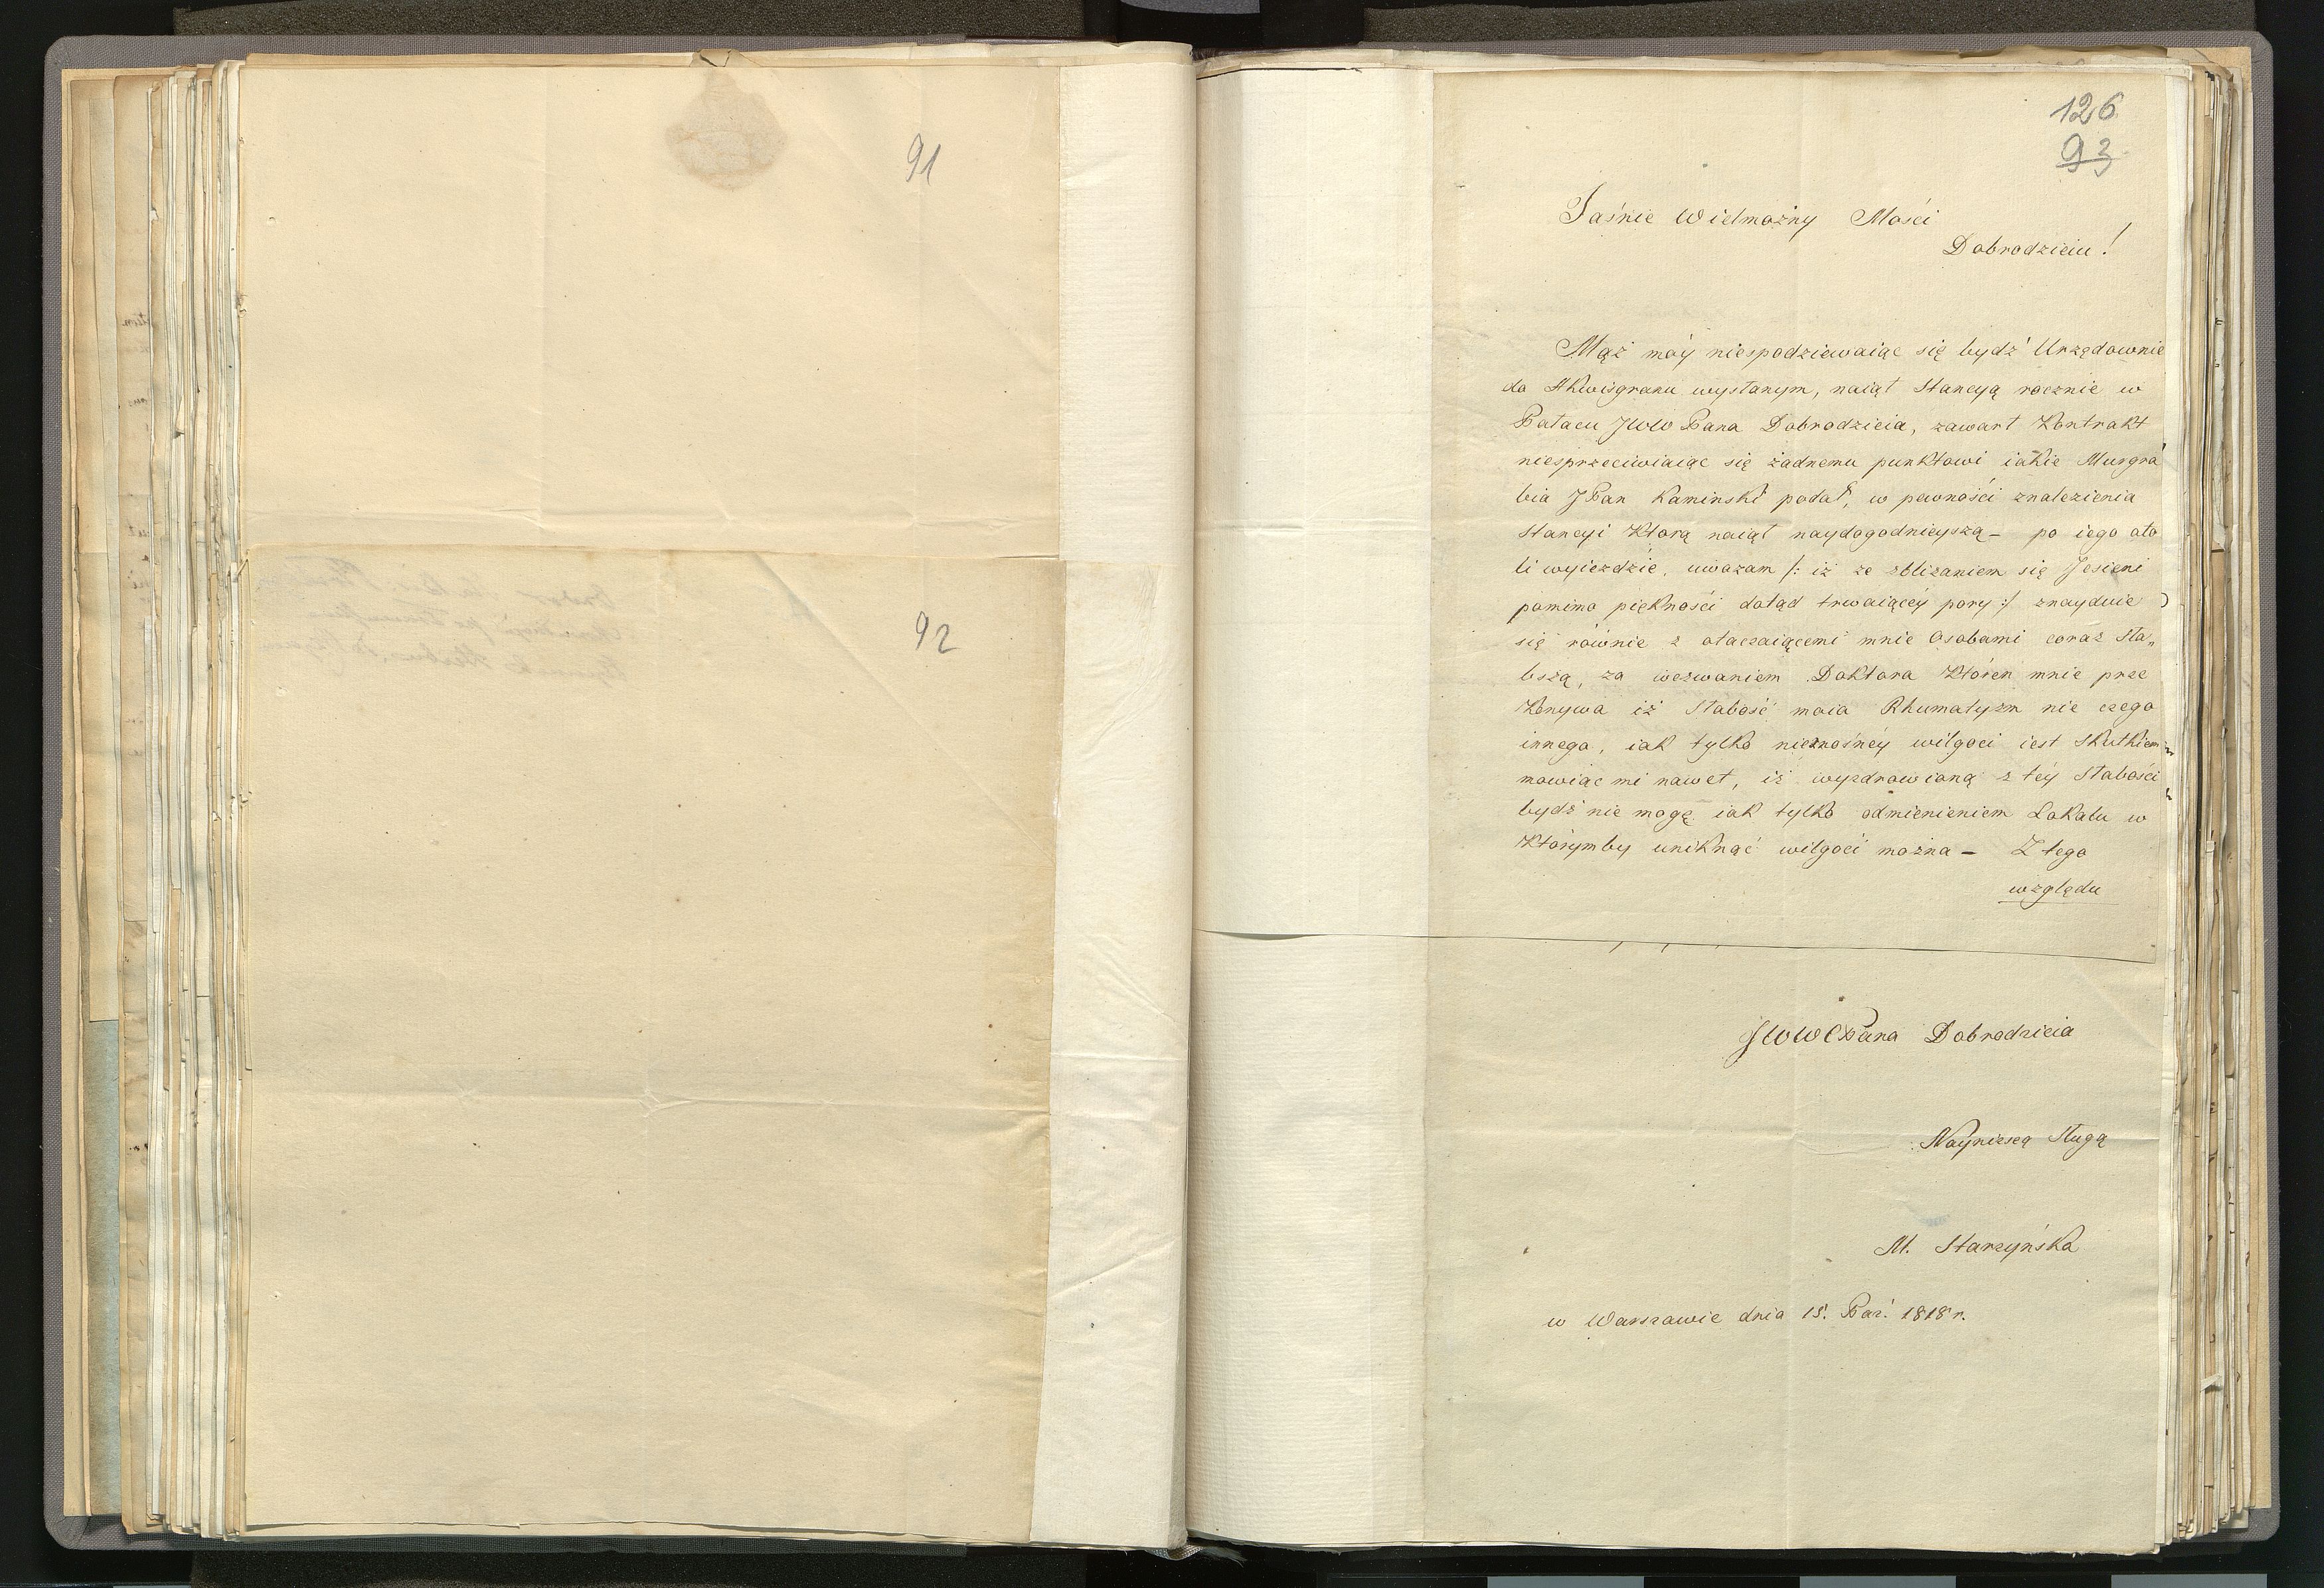 91
92
126
93
Jaśnie Wielmożny Mości
Dobrodzieiu!
Mąż móy niespodziewaiąc się bydź Urzędownie
do Akwisgranu wysłanym, naiął Stancyą rocznie w
Pałacu JWW Pana Dobrodzieia, zawarł Kontrakt
niesprzeciwiaiąc się żadnemu punktowi iakie Murgra
bia JPan Kaminski podał, w pewności znalezienia
Stancyi Którą naiął naydogodnieyszą – po iego oto
li wyieździe, uważam /: iż ze zbliżaniem się Jesieni
pomimo piękności dotąd trwaiącéy pory :/ znayduie
się równie z otaczaiącemi mnie Osobami coraz sła„
bszą, za wezwaniem Doktora Któren mnie prze
Konywa iż Słabość moia Rhumatyzm nic czego
innego, iak tylko nieznośnéy wilgoci iest Skutkiem
mowiąc mi nawet, iż wyzdrowioną z téy Słabości
bydź nie mogę iak tylko odmienieniem Lokalu w
Którymby uniknąć wilgoci można – Z tego
względu
JWW Pana Dobrodzieia
Nayniższą Sługą
M. Starzyńska
w Warszawie dnia 15. Paź. 1818 r.